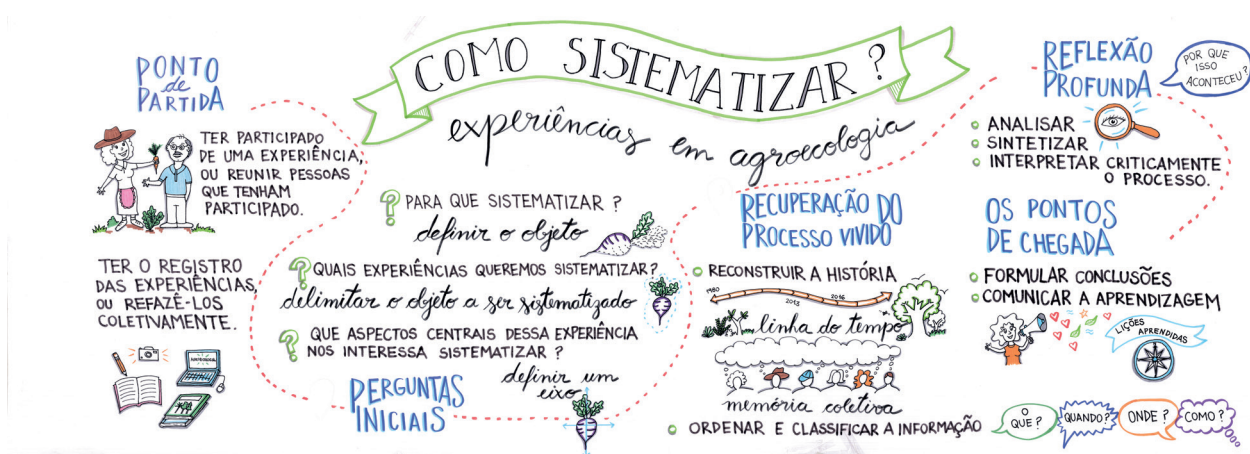 COMO SISTEMATIZAR?
experiências em agroecologia
PONTO
de
PARTIDA
TER PARTICIPADO
DE UMA EXPERIÊNCIA,
OU REUNIR PESSOAS
QUE TENHAM
PARTICIPADO.
TER O REGISTRO
DAS EXPERIÊNCIAS,
OU REFAZÊ-LOS
COLETIVAMENTE.
? PARA QUE SISTEMATIZAR ?
definir o objeto
? QUAIS EXPERIÊNCIAS QUEREMOS SISTEMATIZAR?
delimitar o objeto a ser sistematizado
? QUE ASPECTOS CENTRAIS DESSA EXPERIÊNCIA
NOS INTERESSA SISTEMATIZAR ?
definir um
eixo
PERGUNTAS
INICIAIS
RECUPERAÇÃO DO
PROCESSO VIVIDO
RECONSTRUIR A HISTÓRIA
1980
2013
2016
linha do tempo
memória coletiva
ORDENAR E CLASSIFICAR A INFORMAÇÃO
REFLEXÃO
PROFUNDA
POR QUE
ISSO
ACONTECEU?
ANALISAR
SINTETIZAR
INTERPRETAR CRITICAMENTE
O PROCESSO.
OS PONTOS
DE CHEGADA
FORMULAR CONCLUSÕES
COMUNICAR A APRENDIZAGEM
LIÇÕES
APRENDIDAS
O
QUE?
QUANDO?
ONDE ?
COMO ?